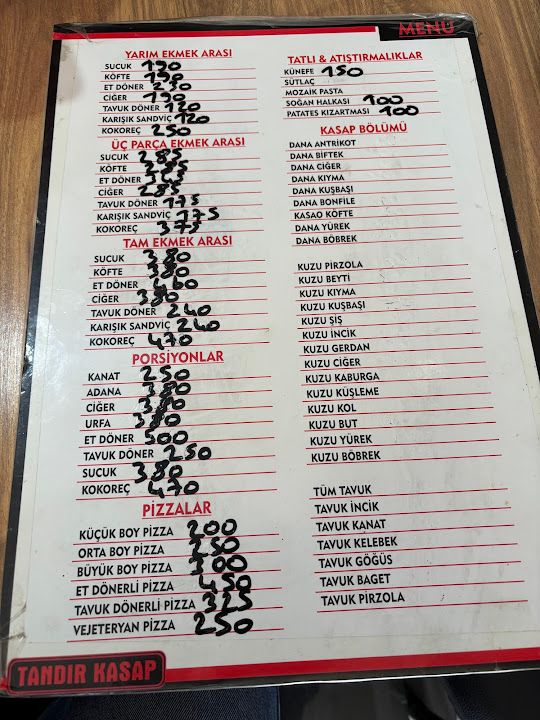 MENÜ
YARIM EKMEK ARASI
SUCUK 190
KÖFTE 190
ET DÖNER 230
CİĞER 190
TAVUK DÖNER 120
KARIŞIK SANDVİÇ 120
KOKOREÇ 250
ÜÇ PARÇA EKMEK ARASI
SUCUK 285
KÖFTE 285
ET DÖNER
CİĞER 285
TAVUK DÖNER 175
KARIŞIK SANDVİÇ 175
KOKOREÇ 375
TAM EKMEK ARASI
SUCUK 380
KÖFTE 380
ET DÖNER 460
CİĞER 380
TAVUK DÖNER 240
KARIŞIK SANDVİÇ 240
KOKOREÇ 470
PORSİYONLAR
KANAT 250
ADANA 380
CİĞER 380
URFA 380
ET DÖNER 500
TAVUK DÖNER 250
SUCUK 380
KOKOREÇ 470
PİZZALAR
KÜÇÜK BOY PİZZA 200
ORTA BOY PİZZA 250
BÜYÜK BOY PİZZA 300
ET DÖNERLİ PİZZA 450
TAVUK DÖNERLİ PİZZA 325
VEJETERYAN PİZZA 250
TATLI & ATIŞTIRMALIKLAR
KÜNEFE 150
SÜTLAÇ
MOZAİK PASTA
SOĞAN HALKASI 100
PATATES KIZARTMASI 100
KASAP BÖLÜMÜ
DANA ANTRİKOT
DANA BİFTEK
DANA CİĞER
DANA KIYMA
DANA KUŞBAŞI
DANA BONFİLE
KASAO KÖFTE
DANA YÜREK
DANA BÖBREK
KUZU PİRZOLA
KUZU BEYTİ
KUZU KIYMA
KUZU KUŞBAŞI
KUZU ŞİŞ
KUZU İNCİK
KUZU GERDAN
KUZU CİĞER
KUZU KABURGA
KUZU KÜŞLEME
KUZU KOL
KUZU BUT
KUZU YÜREK
KUZU BÖBREK
TÜM TAVUK
TAVUK İNCİK
TAVUK KANAT
TAVUK KELEBEK
TAVUK GÖĞÜS
TAVUK BAGET
TAVUK PİRZOLA
TANDIR KASAP